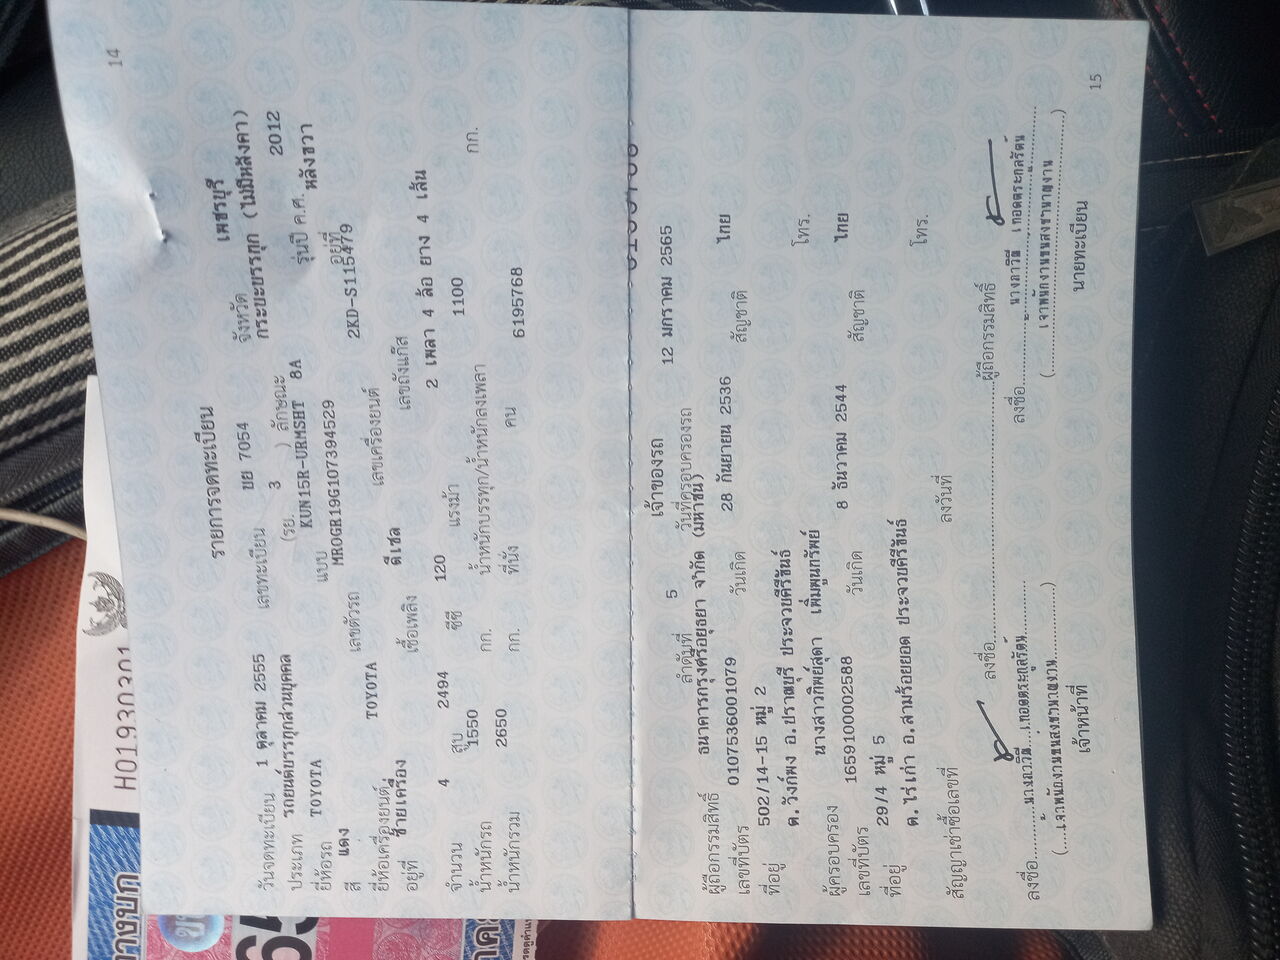 14
รายการจดทะเบียน
วันจดทะเบียน 1 ตุลาคม 2555 เลขทะเบียน ขย 7054 จังหวัด เพชรบุรี
ประเภท รถยนต์บรรทุกส่วนบุคคล (รย. 3 ) ลักษณะ กระบะบรรทุก (ไม่มีหลังคา)
ยี่ห้อรถ TOYOTA แบบ KUN15R-URMSHT 8A รุ่นปี ค.ศ. 2012
สี แดง เลขตัวรถ MROGR19G107394529 อยู่ที่ หลังขวา
ยี่ห้อเครื่องยนต์ TOYOTA เลขเครื่องยนต์ 2KD-S115479
อยู่ที่ ซ้ายเครื่อง เชื้อเพลิง ดีเซล เลขถังแก๊ส
จำนวน 4 สูบ 2494 ซีซี 120 แรงม้า 2 เพลา 4 ล้อ ยาง 4 เส้น
น้ำหนักรถ 1550 กก. น้ำหนักบรรทุก/น้ำหนักลงเพลา 1100 กก.
น้ำหนักรวม 2650 กก. ที่นั่ง คน 6195768
เจ้าของรถ
ลำดับที่ 5 วันที่ครอบครองรถ 12 มกราคม 2565
ผู้ถือกรรมสิทธิ์ ธนาคารกรุงศรีอยุธยา จำกัด (มหาชน)
เลขที่บัตร 0107536001079 วันเกิด 28 กันยายน 2536 สัญชาติ ไทย
ที่อยู่ 502/14-15 หมู่ 2
ต.วังก์พง อ.ปราณบุรี ประจวบคีรีขันธ์ โทร.
ผู้ครอบครอง นางสาวทิพย์สุดา เพิ่มพูนทรัพย์
เลขที่บัตร 1659100002588 วันเกิด 8 ธันวาคม 2544 สัญชาติ ไทย
ที่อยู่ 29/4 หมู่ 5
ต.ไร่เก่า อ.สามร้อยยอด ประจวบคีรีขันธ์ โทร.
สัญญาเช่าซื้อเลขที่ ลงวันที่
ลงชื่อ ผู้ถือกรรมสิทธิ์
ลงชื่อ นางภาวินี เทอดตระกูลรัตน์ ลงชื่อ นางภาวินี เทอดตระกูลรัตน์
(เจ้าพนักงานขนส่งชำนาญงาน) (เจ้าพนักงานขนส่งชำนาญงาน)
เจ้าหน้าที่ นายทะเบียน
15
H01930301
ทางบก